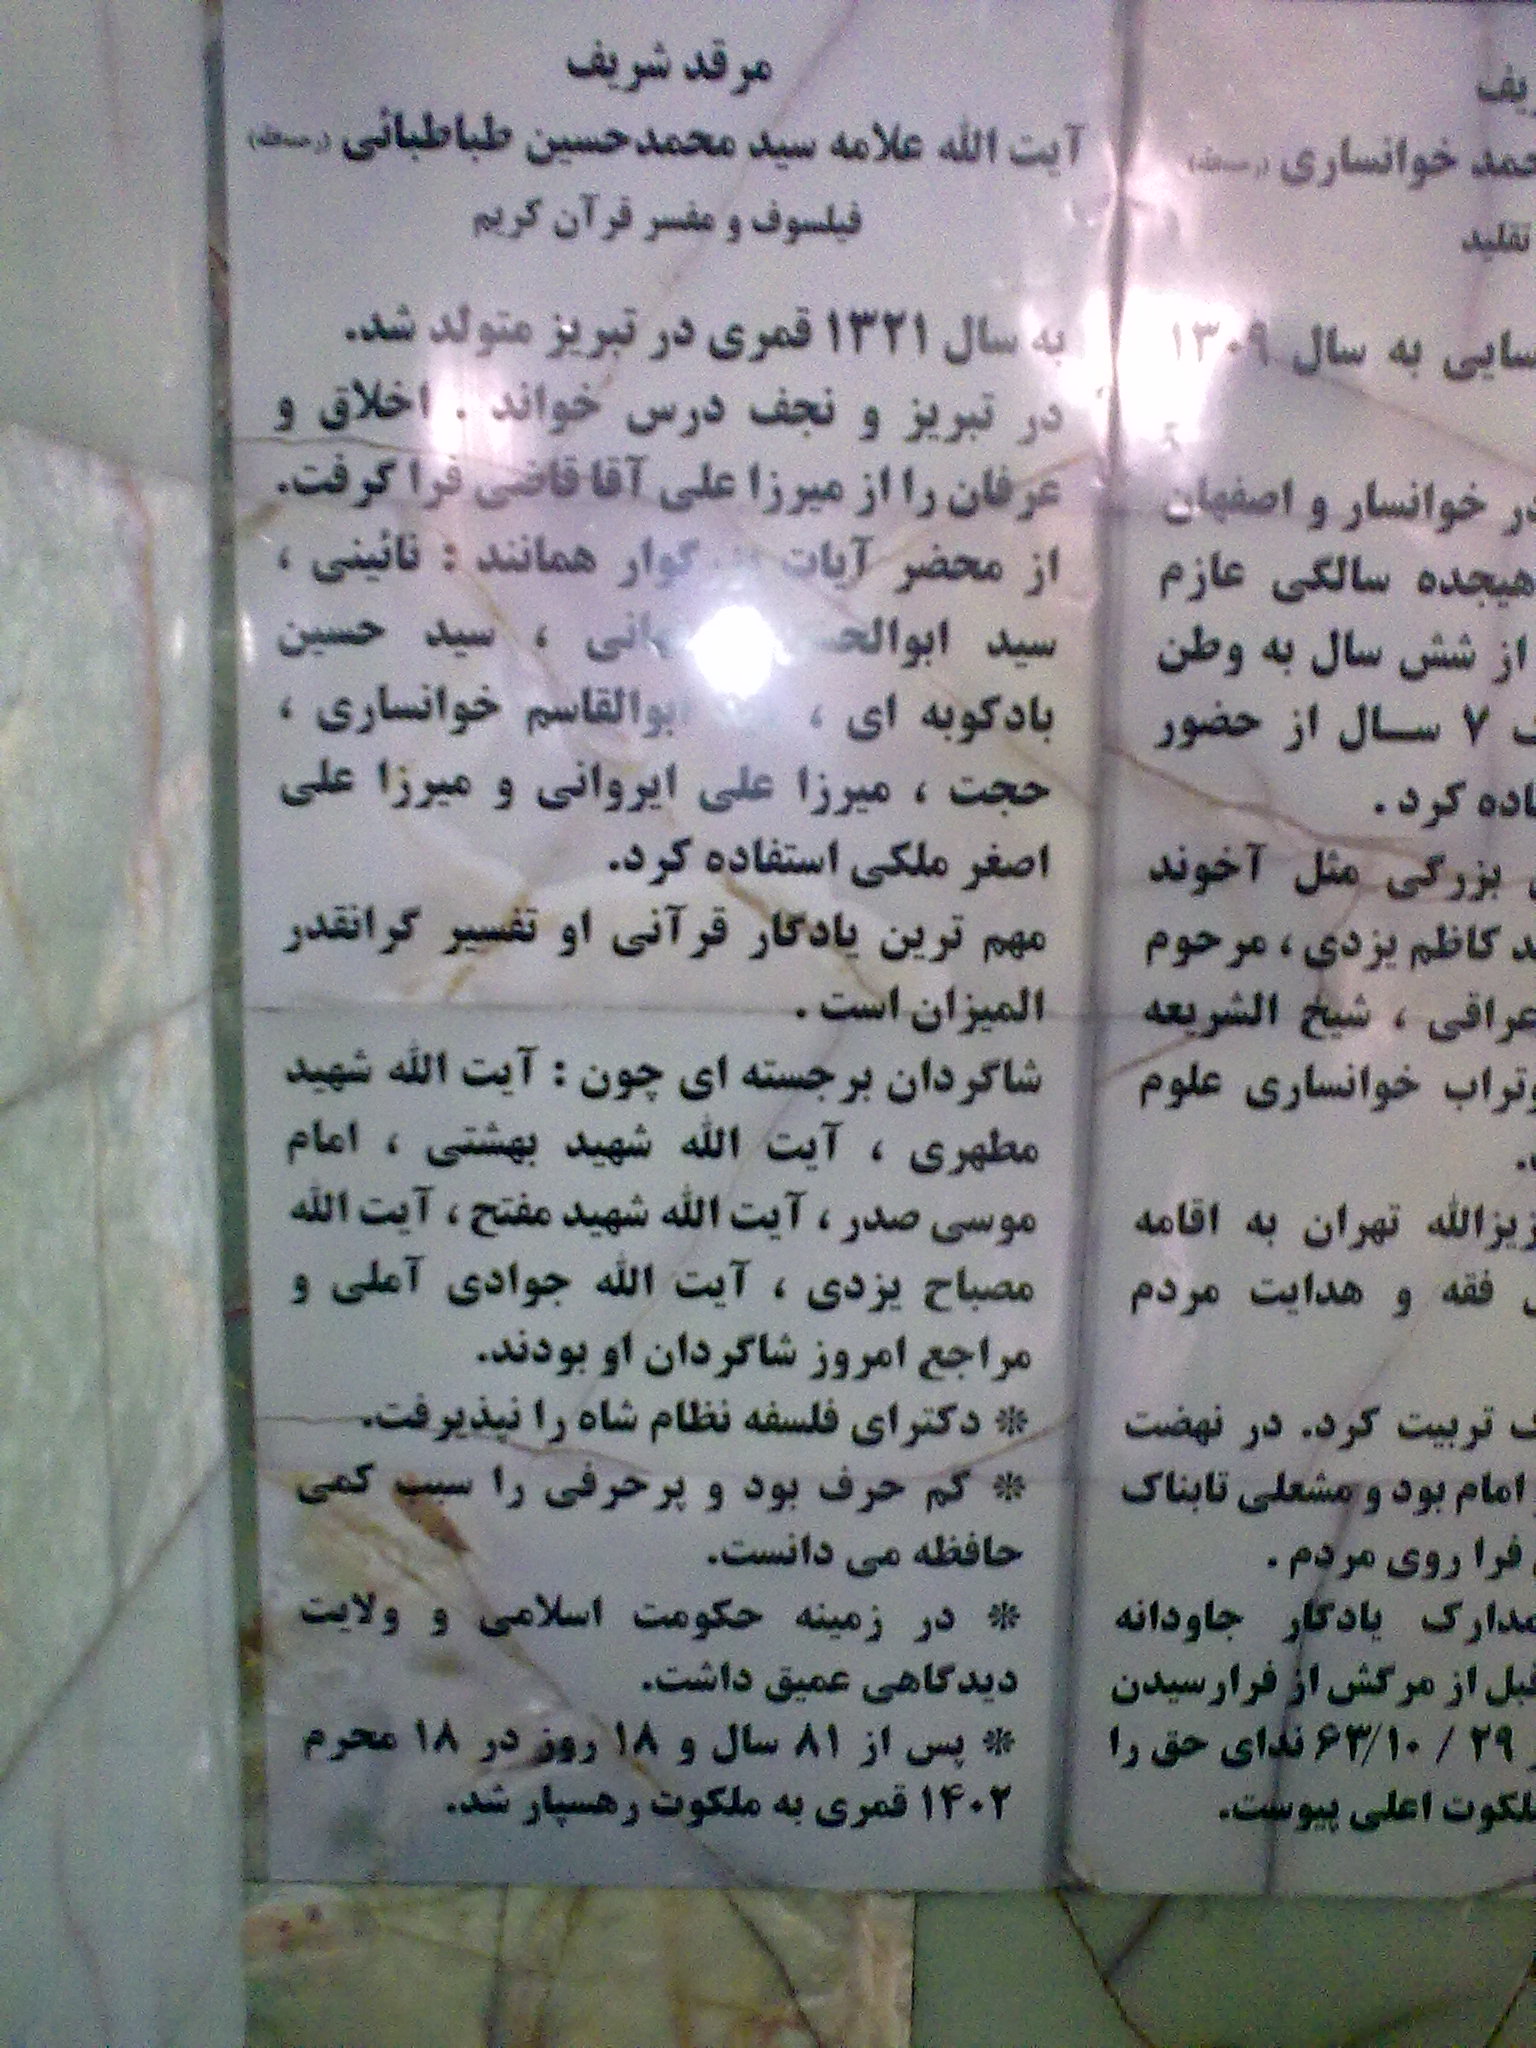 مرقد شریف
آیت الله علامه سید محمدحسین طباطبائی (رحمةالله)
فیلسوف و مفسر قرآن کریم
به سال ۱۳۲۱ قمری در تبریز متولد شد.
در تبریز و نجف درس خواند . اخلاق و
عرفان را از میرزا علی آقا قاضی فرا گرفت.
از محضر آیات همانند : نائینی ،
سید ، سید حسین
بادکوبه ای ، ابوالقاسم خوانساری ،
حجت ، میرزا علی ایروانی و میرزا علی
اصغر ملکی استفاده کرد.
مهم ترین یادگار قرآنی او تفسیر گرانقدر
المیزان است .
شاگردان برجسته ای چون : آیت الله شهید
مطهری ، آیت الله شهید بهشتی ، امام
موسی صدر ، آیت الله شهید مفتح ، آیت الله
مصباح یزدی ، آیت الله جوادی آملی و
مراجع امروز شاگردان او بودند.
❊ دکترای فلسفه نظام شاه را نپذیرفت.
❊ کم حرف بود و پرحرفی را سبب کمی
حافظه می دانست.
❊ در زمینه حکومت اسلامی و ولایت
دیدگاهی عمیق داشت.
❊ پس از ۸۱ سال و ۱۸ روز در ۱۸ محرم
۱۴۰۲ قمری به ملکوت رهسپار شد.
خوانساری (رحمةالله)
تقلید
به سال ۱۳۰۹
خوانسار و اصفهان
هیجده سالگی عازم
از شش سال به وطن
۷ ســال از حضور
کرد .
بزرگی مثل آخوند
کاظم یزدی ، مرحوم
عراقی ، شیخ الشریعه
خوانساری علوم
تهران به اقامه
فقه و هدایت مردم
تربیت کرد. در نهضت
امام بود و مشعلی تابناک
فرا روی مردم .
یادگار جاودانه
قبل از مرگش از فرارسیدن
۲۹ / ۶۳/۱۰ ندای حق را
اعلی پیوست.